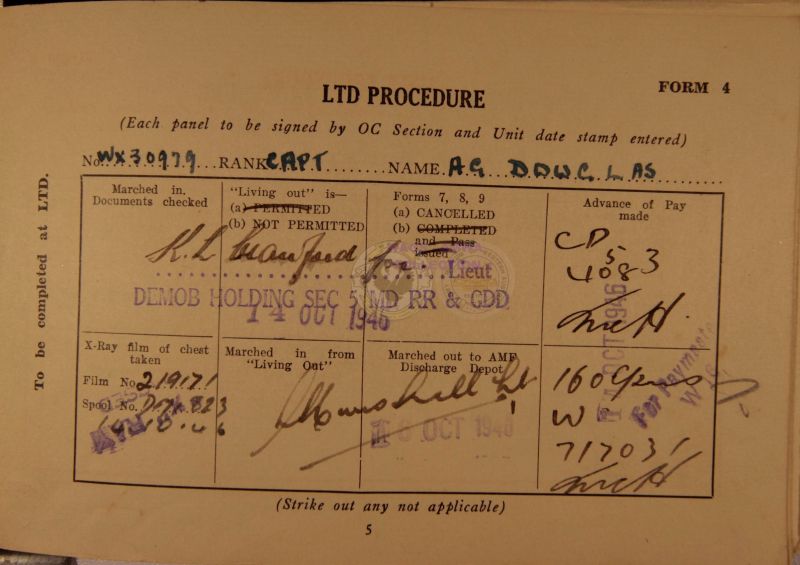 FORM 4
LTD PROCEDURE
(Each panel to be signed by OC Section and Unit date stamp entered)
No. WX30979 RANK CAPT NAME A G DOUGLAS
To be completed at LTD.
Marched in.
Documents checked
"Living out" is—
(a) PERMITTED
(b) NOT PERMITTED
Forms 7, 8, 9
(a) CANCELLED
(b) COMPLETED
and Pass
issued
Advance of Pay
made
CD 5
4083
for Lieut
DEMOB HOLDING SEC 5 MD RR & GDD
14 OCT 1946
14 OCT 1946
X-Ray film of chest
taken
Film No 219171
Spool No.
14.10.46
Marched in from
"Living Out"
Marched out to AMF
Discharge Depot
Marshall Lt
16 OCT 1946
W
717031
For Payments
(Strike out any not applicable)
5